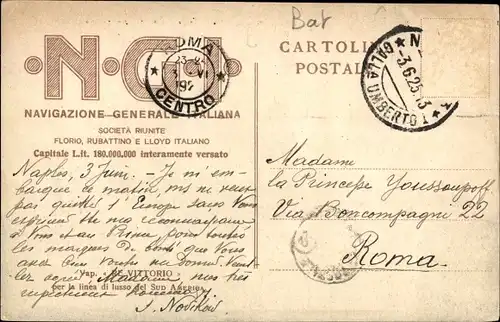 Bat
·N·G·I·
NAVIGAZIONE GENERALE ITALIANA
SOCIETÀ RIUNITE
FLORIO, RUBATTINO E LLOYD ITALIANO
Capitale L.it. 180.000.000 interamente versato
ROMA
CENTRO
CARTOLINA
POSTALE
3.6.25
GALLA UMBERTO I
Naples, 3 Juin. - Je m'em-
barque ce matin, ms ne veux
pas quitter l'Europe sans Vous
exprimer ma reconnaissance
à Vous et au Prince pour toutes
les marques de bonté que Vous
avez bien voulu me donner. Veuil-
lez agréer Madame mes très
Vap. RE VITTORIO
per la linea di lusso del SUD AMERICA
respectueux hommages
Madame
la Princesse Youssoupoff
Via Boncompagni 22
Roma